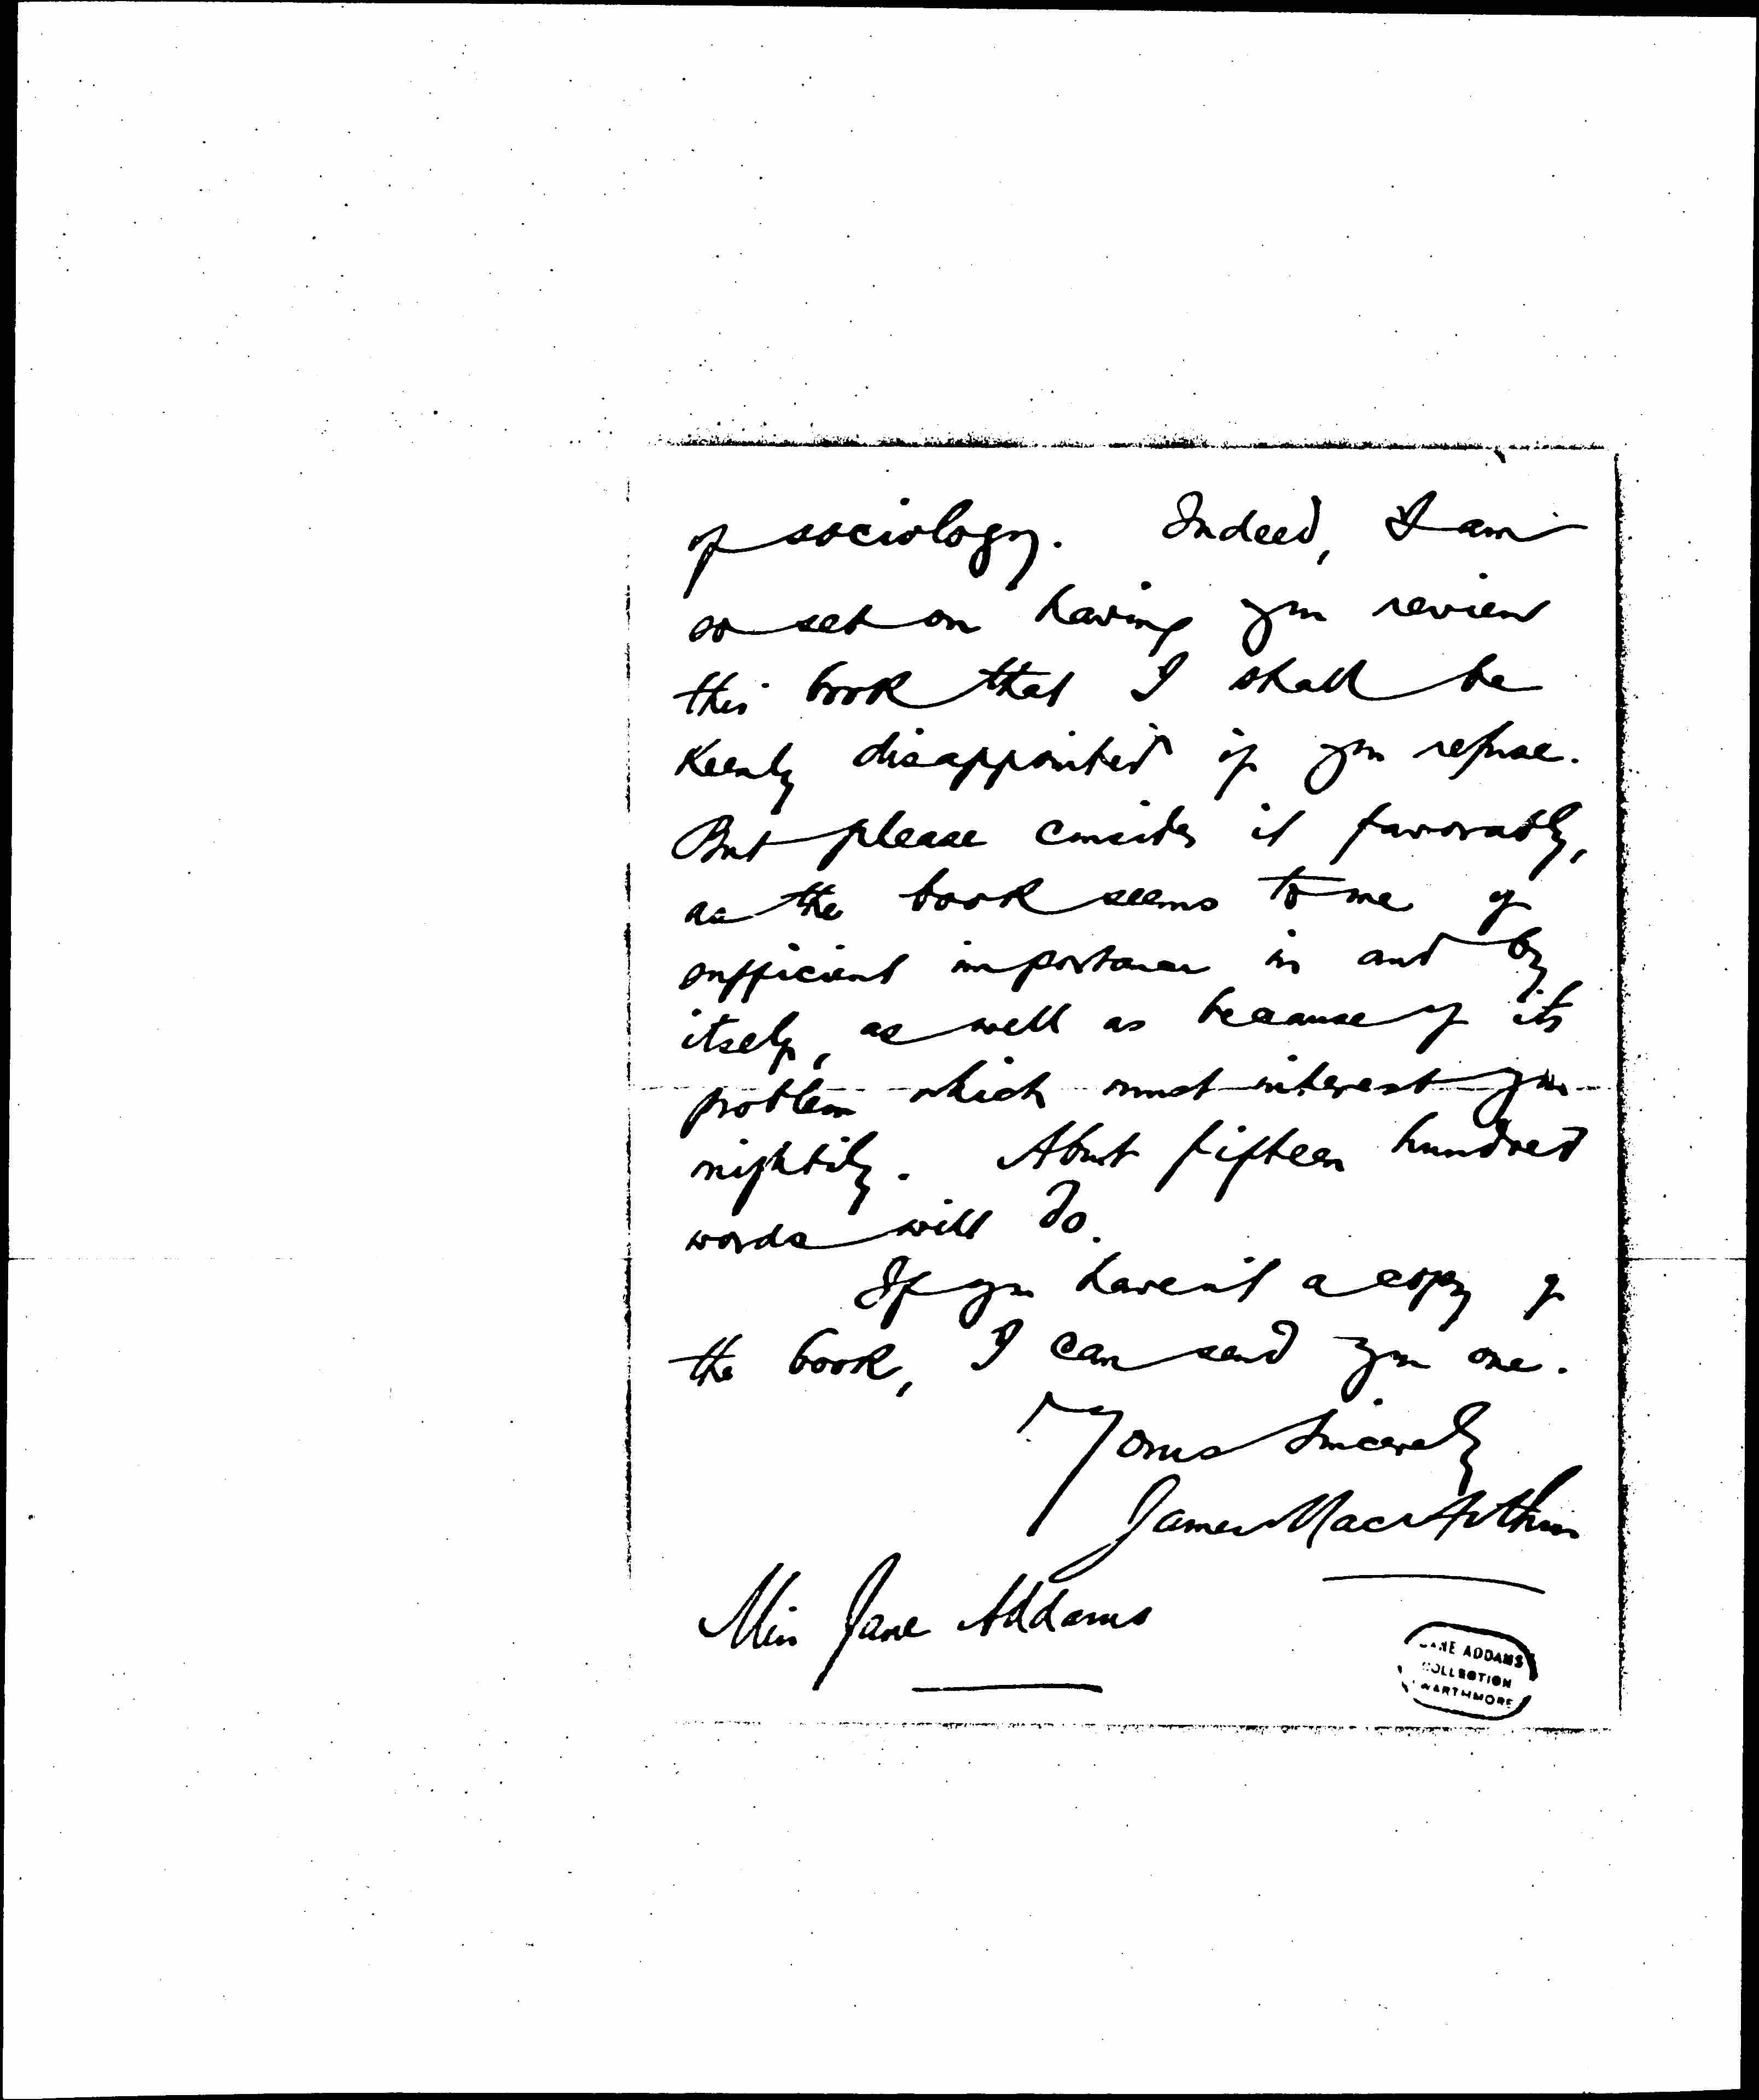 of sociology. Indeed, I am
so set on having you review
this book that I shall be
keenly disappointed if you refuse.
But please consider it favorably,
as the book seems to me of
sufficient importance in and by
itself, as well as because of its
problem which must interest you
mightily. About fifteen hundred
words will do.
If you haven't a copy of
the book, I can send you one.
Yours Sincerely
James MacArthur
Miss Jane Addams
JANE ADDAMS
COLLECTION
SWARTHMORE